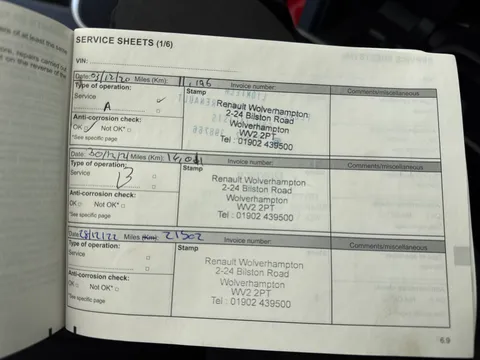 SERVICE SHEETS (1/6)
VIN:
Date: 01/12/20 Miles (Km): 11,196 Invoice number: Comments/miscellaneous
Type of operation: Stamp
Service
A
Anti-corrosion check:
OK Not OK*
*See specific page
Renault Wolverhampton
2-24 Bilston Road
Wolverhampton
WV2 2PT
Tel : 01902 439500
Date: 30/12/21 Miles (Km): Invoice number: Comments/miscellaneous
Type of operation: Stamp
Service
B
Anti-corrosion check:
OK Not OK*
*See specific page
Renault Wolverhampton
2-24 Bilston Road
Wolverhampton
WV2 2PT
Tel : 01902 439500
Date: 28/12/22 Miles (Km): 21502 Invoice number: Comments/miscellaneous
Type of operation: Stamp
Service
Anti-corrosion check:
OK Not OK*
*See specific page
Renault Wolverhampton
2-24 Bilston Road
Wolverhampton
WV2 2PT
Tel : 01902 439500
6.9